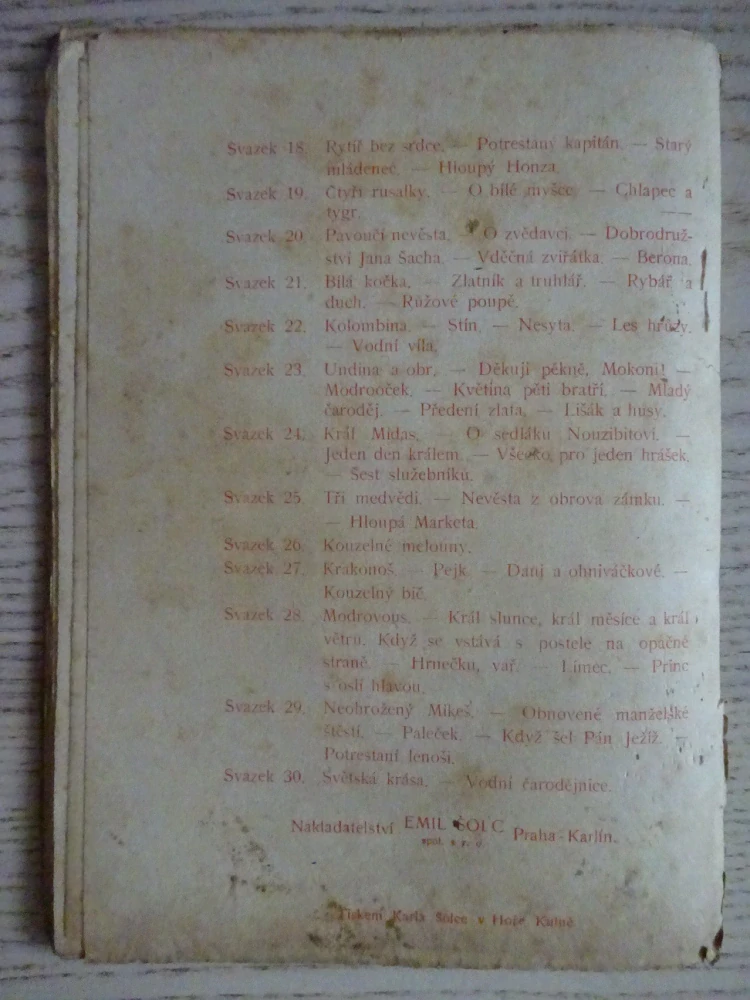 Svazek 18. Rytíř bez srdce. — Potrestaný kapitán. — Starý
mládenec. — Hloupý Honza.
Svazek 19. Čtyři rusalky. — O bílé myšce. — Chlapec a
tygr. ——
Svazek 20. Pavoučí nevěsta. — O zvědavci. — Dobrodruž-
ství Jana Šacha. — Vděčná zvířátka. — Berona.
Svazek 21. Bílá kočka. — Zlatník a truhlář. — Rybář a
duch. — Růžové poupě.
Svazek 22. Kolombina. — Stín. — Nesyta. — Les hrůzy.
— Vodní víla.
Svazek 23. Undina a obr. — Děkuji pěkně, Mokoni! —
Modrooček. — Květina pěti bratří. — Mladý
čaroděj. — Předení zlata. — Lišák a husy.
Svazek 24. Král Midas. — O sedláku Nouzibitovi. —
Jeden den králem. — Všecko pro jeden hrášek.
— Šest služebníků.
Svazek 25. Tři medvědi. — Nevěsta z obrova zámku. —
— Hloupá Marketa.
Svazek 26. Kouzelné melouny.
Svazek 27. Krakonoš. — Pejk. — Danj a ohniváčkové. —
Kouzelný bič.
Svazek 28. Modrovous. — Král slunce, král měsíce a král
větru. Když se vstává s postele na opačné
straně. — Hrnečku, vař. — Límec. — Princ
s oslí hlavou.
Svazek 29. Neohrožený Mikeš. — Obnovené manželské
štěstí. — Paleček. — Když šel Pán Ježíš. —
Potrestaní lenoši.
Svazek 30. Světská krása. — Vodní čarodějnice.
Nakladatelství EMIL ŠOLC Praha-Karlín.
spol. s r. o.
Tiskem Karla Šolce v Hoře Kutné